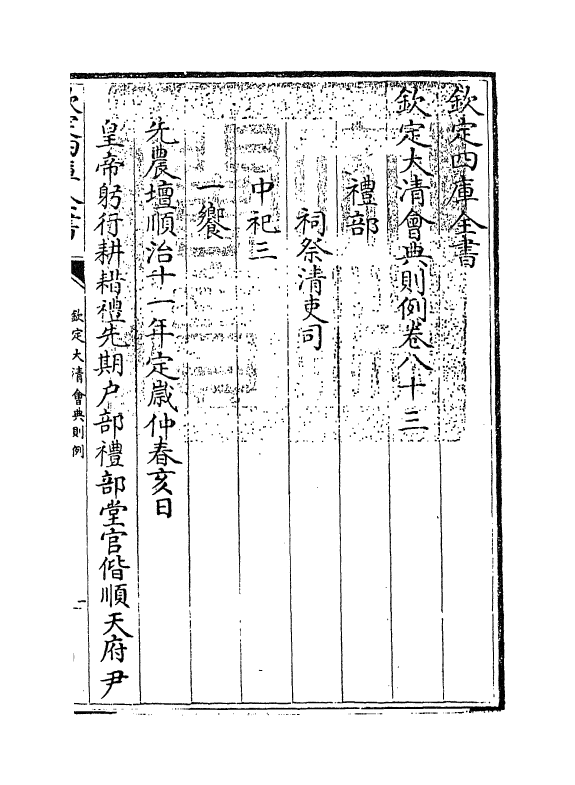 欽定四庫全書
欽定大清會典則例卷八十三
禮部
祠祭清吏司
中祀三
一饗
先農壇順治十一年定嵗仲春亥日
皇帝躬行耕耤禮先期户部禮部堂官偕順天府尹
欽定四庫全書
欽定大清會典則例
一